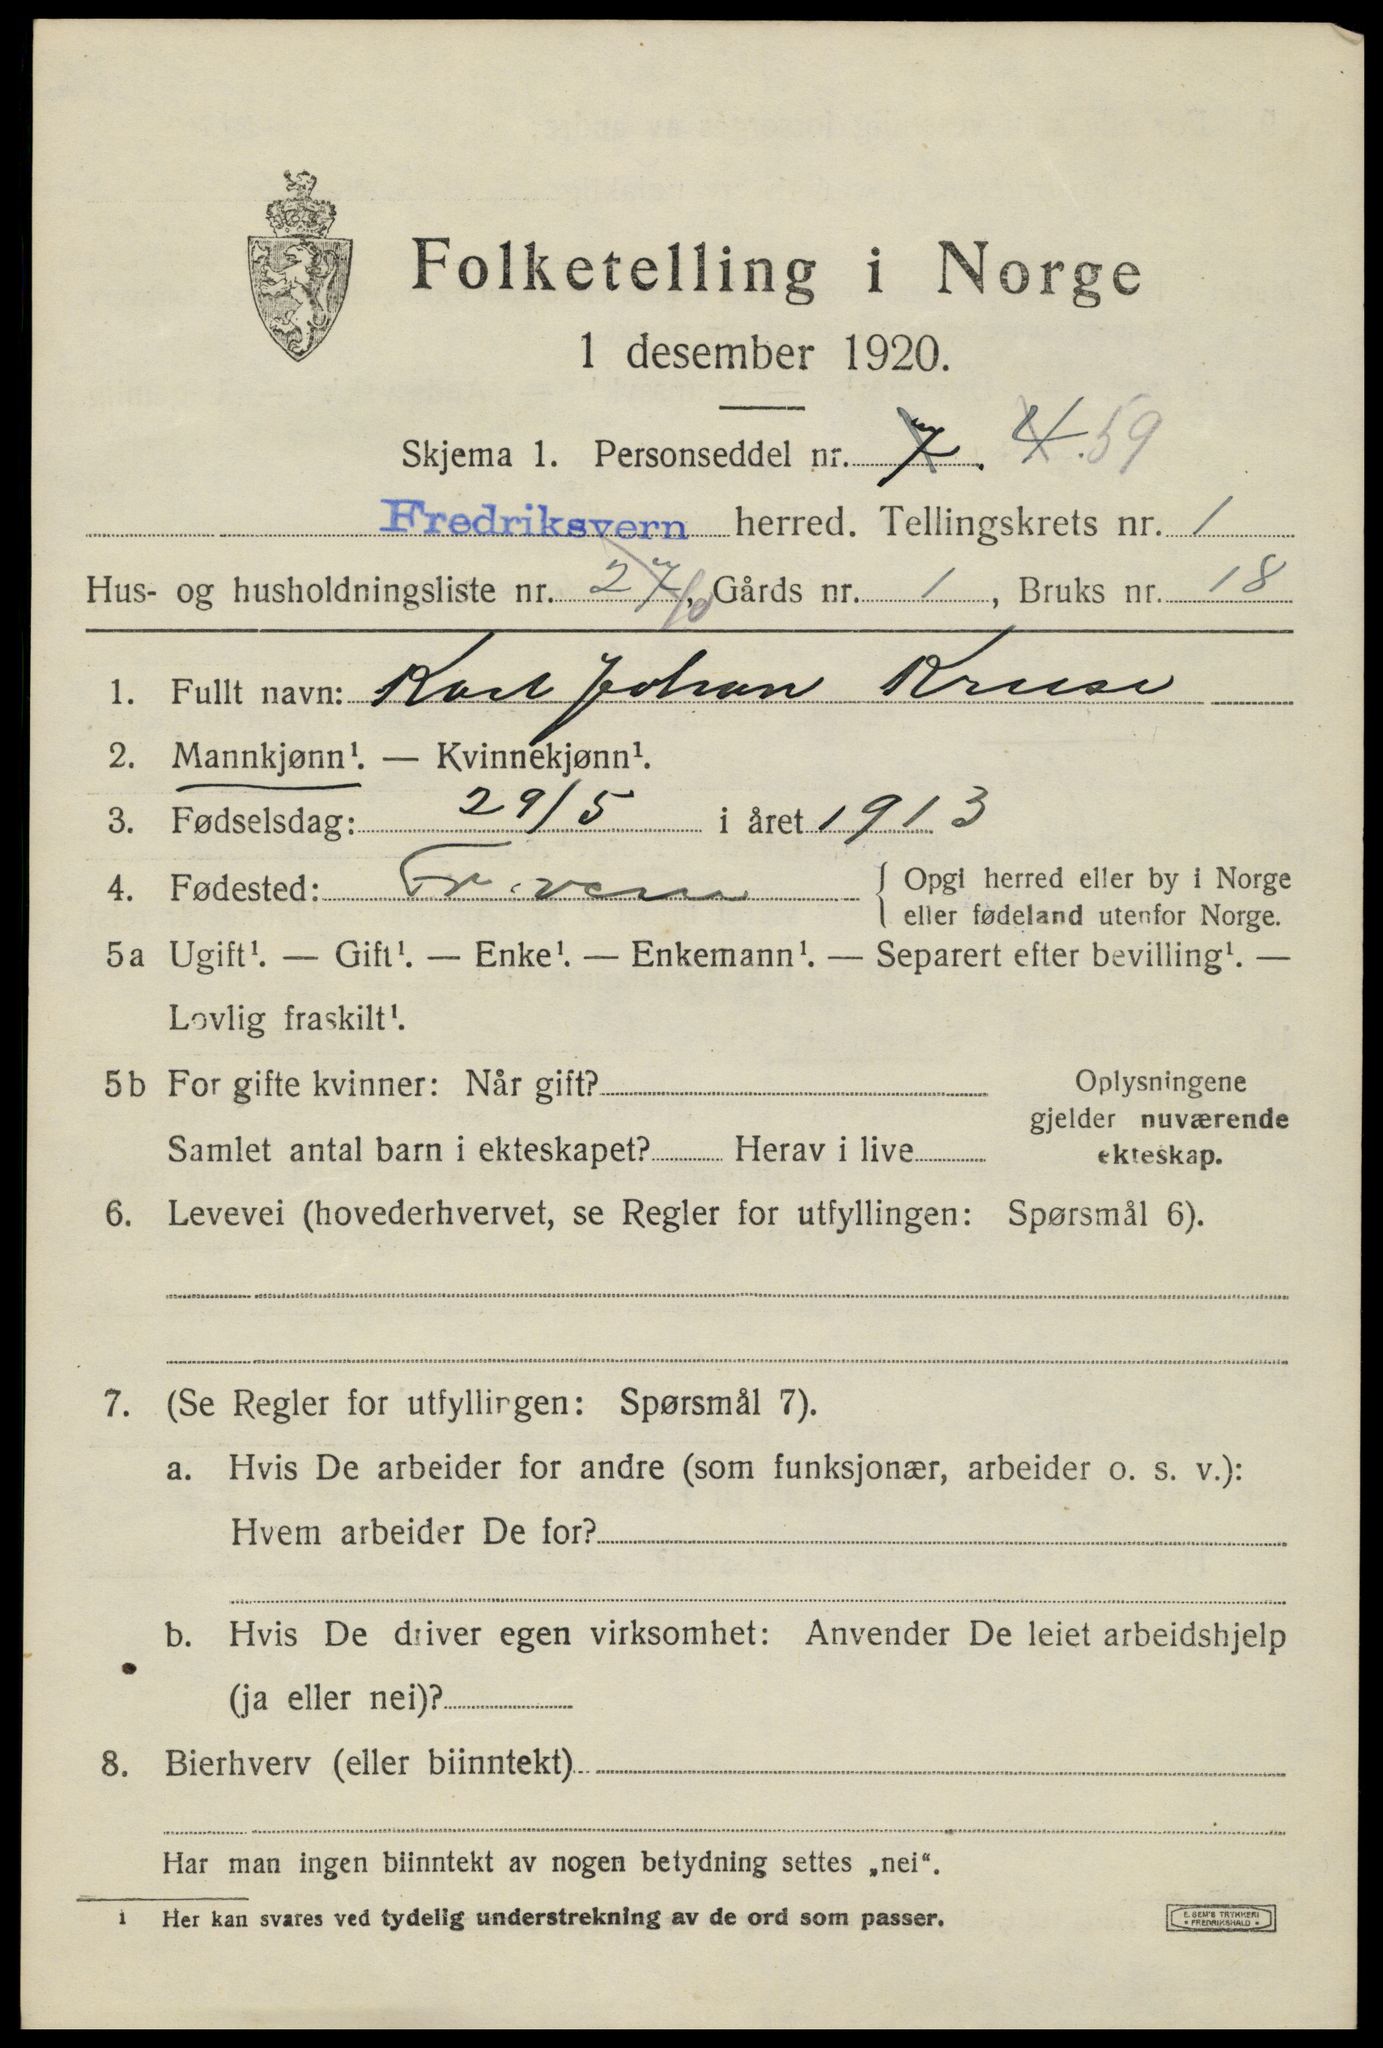 Folketelling i Norge
1 desember 1920.
Skjema 1. Personseddel nr. 7. 4. 59
Fredriksvern herred. Tellingskrets nr. 1
Hus- og husholdningsliste nr. 27, Gårds nr. 1, Bruks nr. 18
1. Fullt navn: Karl Johan Kruse
2. Mannkjønn¹. — Kvinnekjønn¹.
3. Fødselsdag: 29/5 i året 1913
4. Fødested: Fr.vern { Opgi herred eller by i Norge
eller fødeland utenfor Norge.
5a Ugift¹. — Gift¹. — Enke¹. — Enkemann¹. — Separert efter bevilling¹. —
Lovlig fraskilt¹.
5b For gifte kvinner: Når gift?
Samlet antal barn i ekteskapet? Herav i live
Oplysningene
gjelder nuværende
ekteskap.
6. Levevei (hovederhvervet, se Regler for utfyllingen: Spørsmål 6).
7. (Se Regler for utfyllingen: Spørsmål 7).
a. Hvis De arbeider for andre (som funksjonær, arbeider o. s. v.):
Hvem arbeider De for?
b. Hvis De driver egen virksomhet: Anvender De leiet arbeidshjelp
(ja eller nei)?
8. Bierhverv (eller biinntekt)
Har man ingen biinntekt av nogen betydning settes „nei“.
1 Her kan svares ved tydelig understrekning av de ord som passer.
E. SEM'S TRYKKERI
• FREDRIKSHALD •